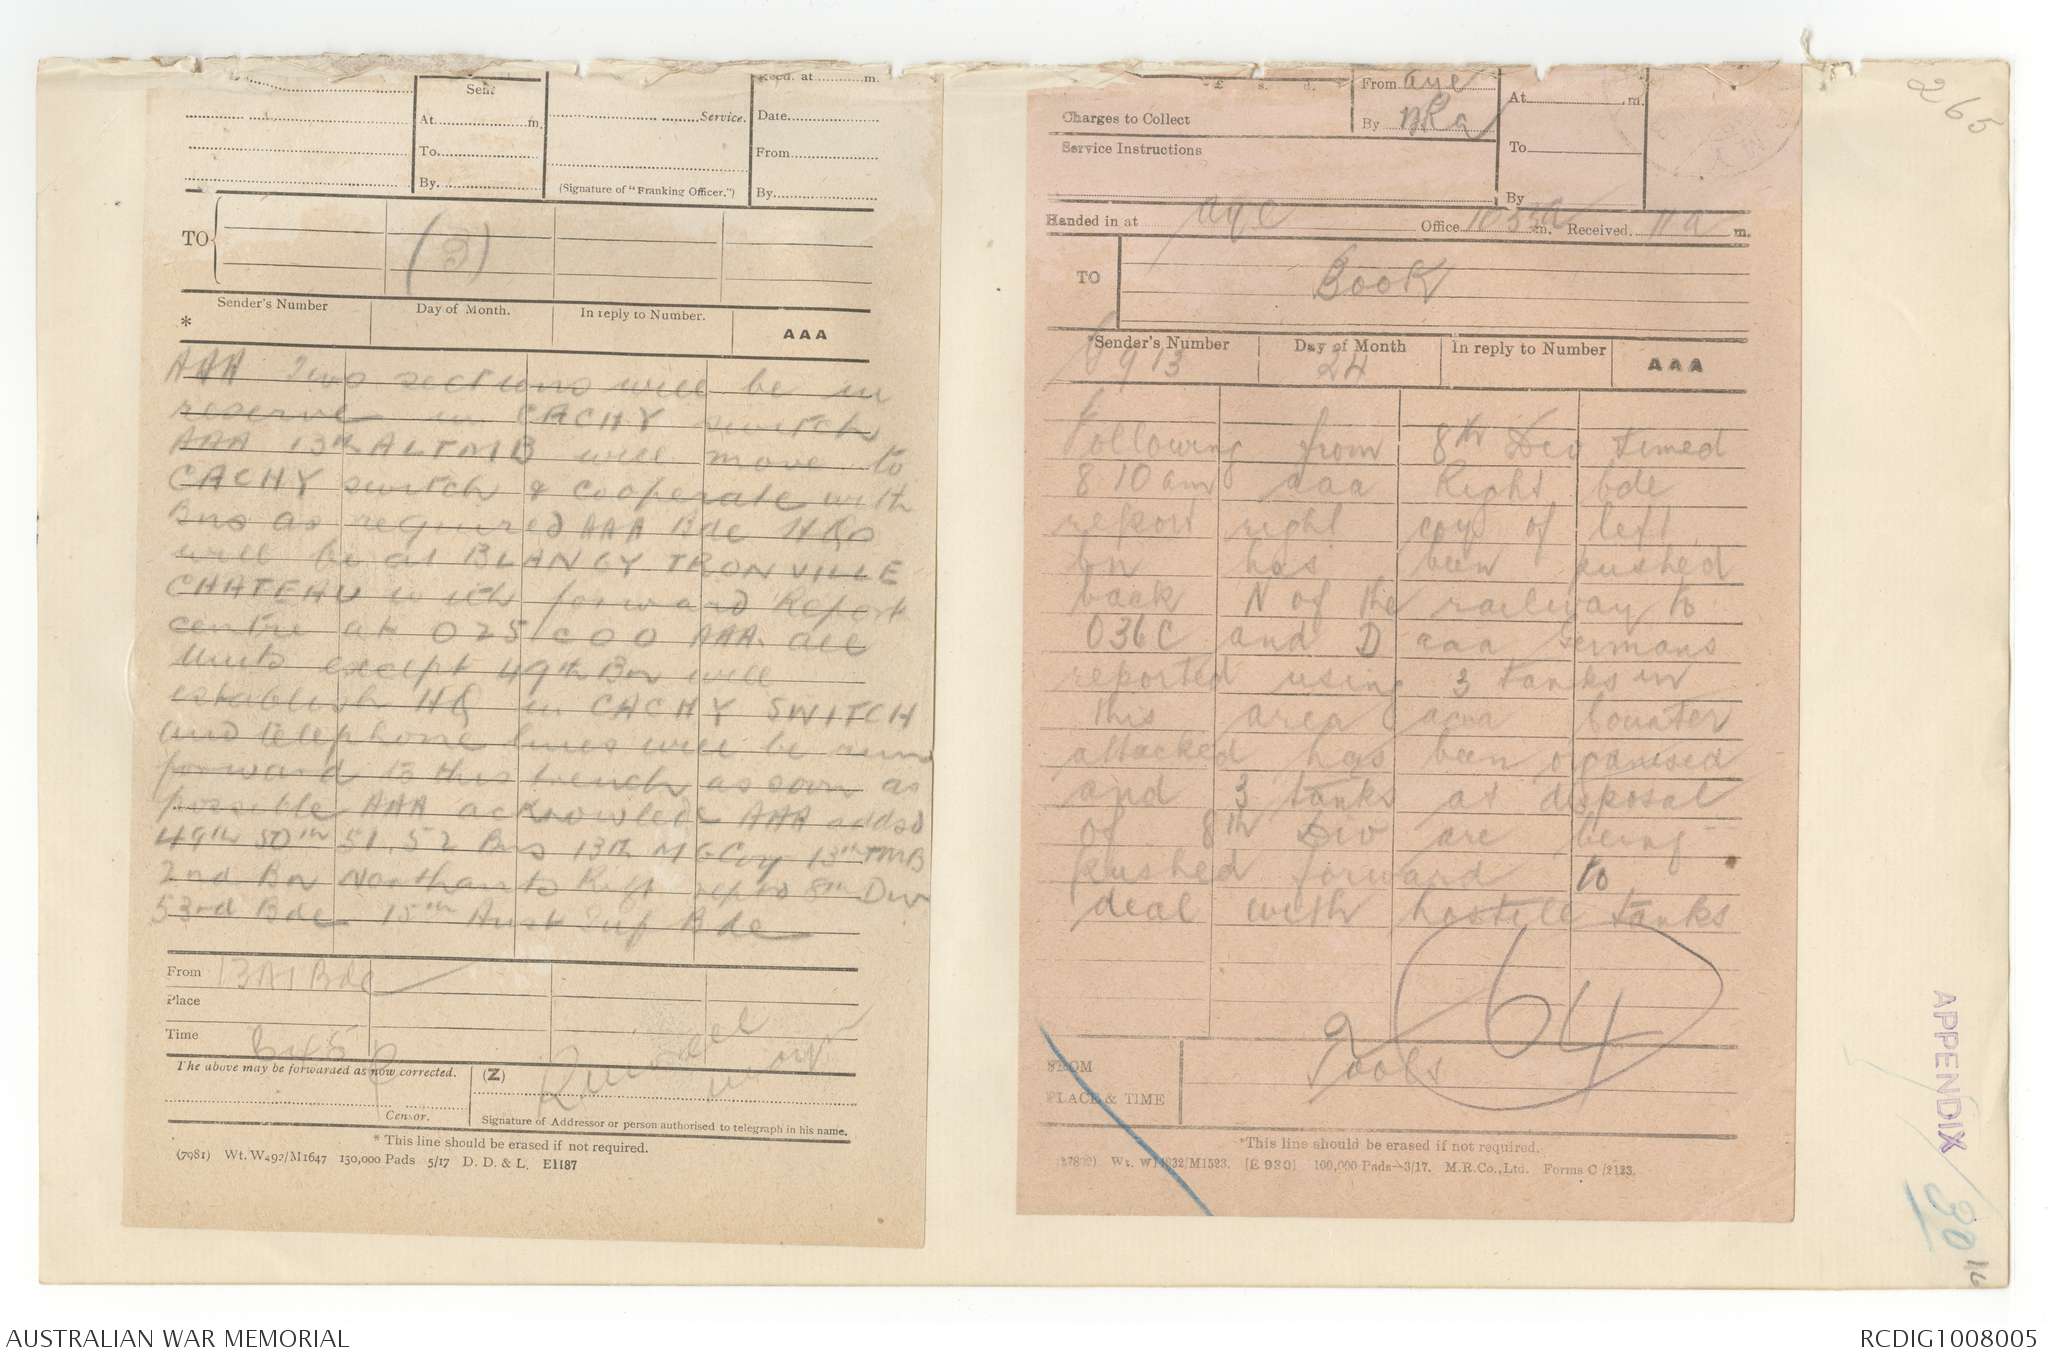 Sent
At m.
To
By
Service.
(Signature of "Franking Officer.")
Recd. at m.
Date
From
By
TO
(3)
Sender's Number
Day of Month.
In reply to Number.
AAA
*
AAA Two sections will be in
reserve in CACHY switch
AAA 13th ALTMB will move to
CACHY switch & cooperate with
Bns as required AAA Bde HQs
will be at BLANGY TRONVILLE
CHATEAU with forward Report
centre at O25 c00 AAA all
Units except 49th Bn will
establish HQ in CACHY SWITCH
and telephone lines will be run
forward to this trench as soon as
possible AAA acknowledge AAA addsd
49th 50th 51. 52 Bns 13th MG Coy 13th TMB
2nd Bn Northants Regt reptd 8th Divn
53rd Bde 15th Aust Inf Bde
From 13 AI Bde
Place
Time
The above may be forwarded as now corrected.
(Z)
Censor.
Signature of Addressor or person authorised to telegraph in his name.
* This line should be erased if not required.
(7981) Wt. W492/M1647 130,000 Pads 5/17 D. D. & L. E1187
265
£ s. d.
Charges to Collect
Service Instructions
From aye
By
At m.
To
By
Handed in at aye Office m. Received 11 a m.
TO
Book
Sender's Number
Day of Month
In reply to Number
AAA
G913
24
Following from 8th Div timed
8 10 am aaa Right bde
report right coy of left
bn has been pushed
back N of the railway to
O36C and D aaa Germans
reported using 3 tanks in
this area aaa Counter
attacked has been organised
and 3 tanks at disposal
of 8th Div are being
pushed forward to
deal with hostile tanks
64
FROM
PLACE & TIME
*This line should be erased if not required.
(27892) Wt. W14832/M1523. [E 930] 100,000 Pads-3/17. M.R.Co.,Ltd. Forms C/2123.
APPENDIX
30
16
AUSTRALIAN WAR MEMORIAL
RCDIG1008005